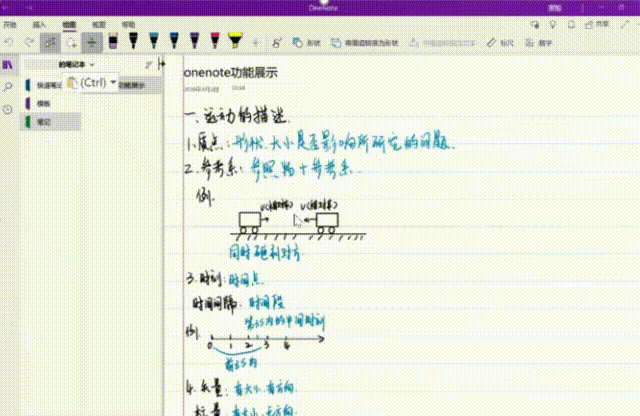 OneNote
开始 插入 绘图 视图 帮助
共享
形状 将墨迹转换为形状 标尺 数学
的笔记本
快速笔记 功能展示
(Ctrl)
模板
笔记
onenote功能展示
一.运动的描述.
1.质点:形状.大小是否影响所研究的问题.
2.参考系:参照物+参考系.
例.
同时碰到对方.
3.时刻:时间点.
时间间隔:时间段
第3s内的中间时刻
例.
0 1 2 3 4
前3s内
4.矢量:有大小.有方向.
标量:有大小.无方向.